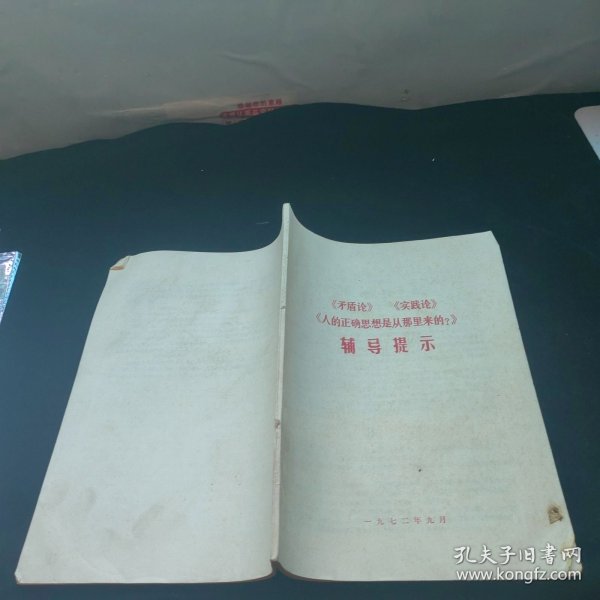 《矛盾论》 《实践论》
《人的正确思想是从那里来的?》
辅导提示
一九七二年九月
孔夫子旧书网
www.kongfz.com